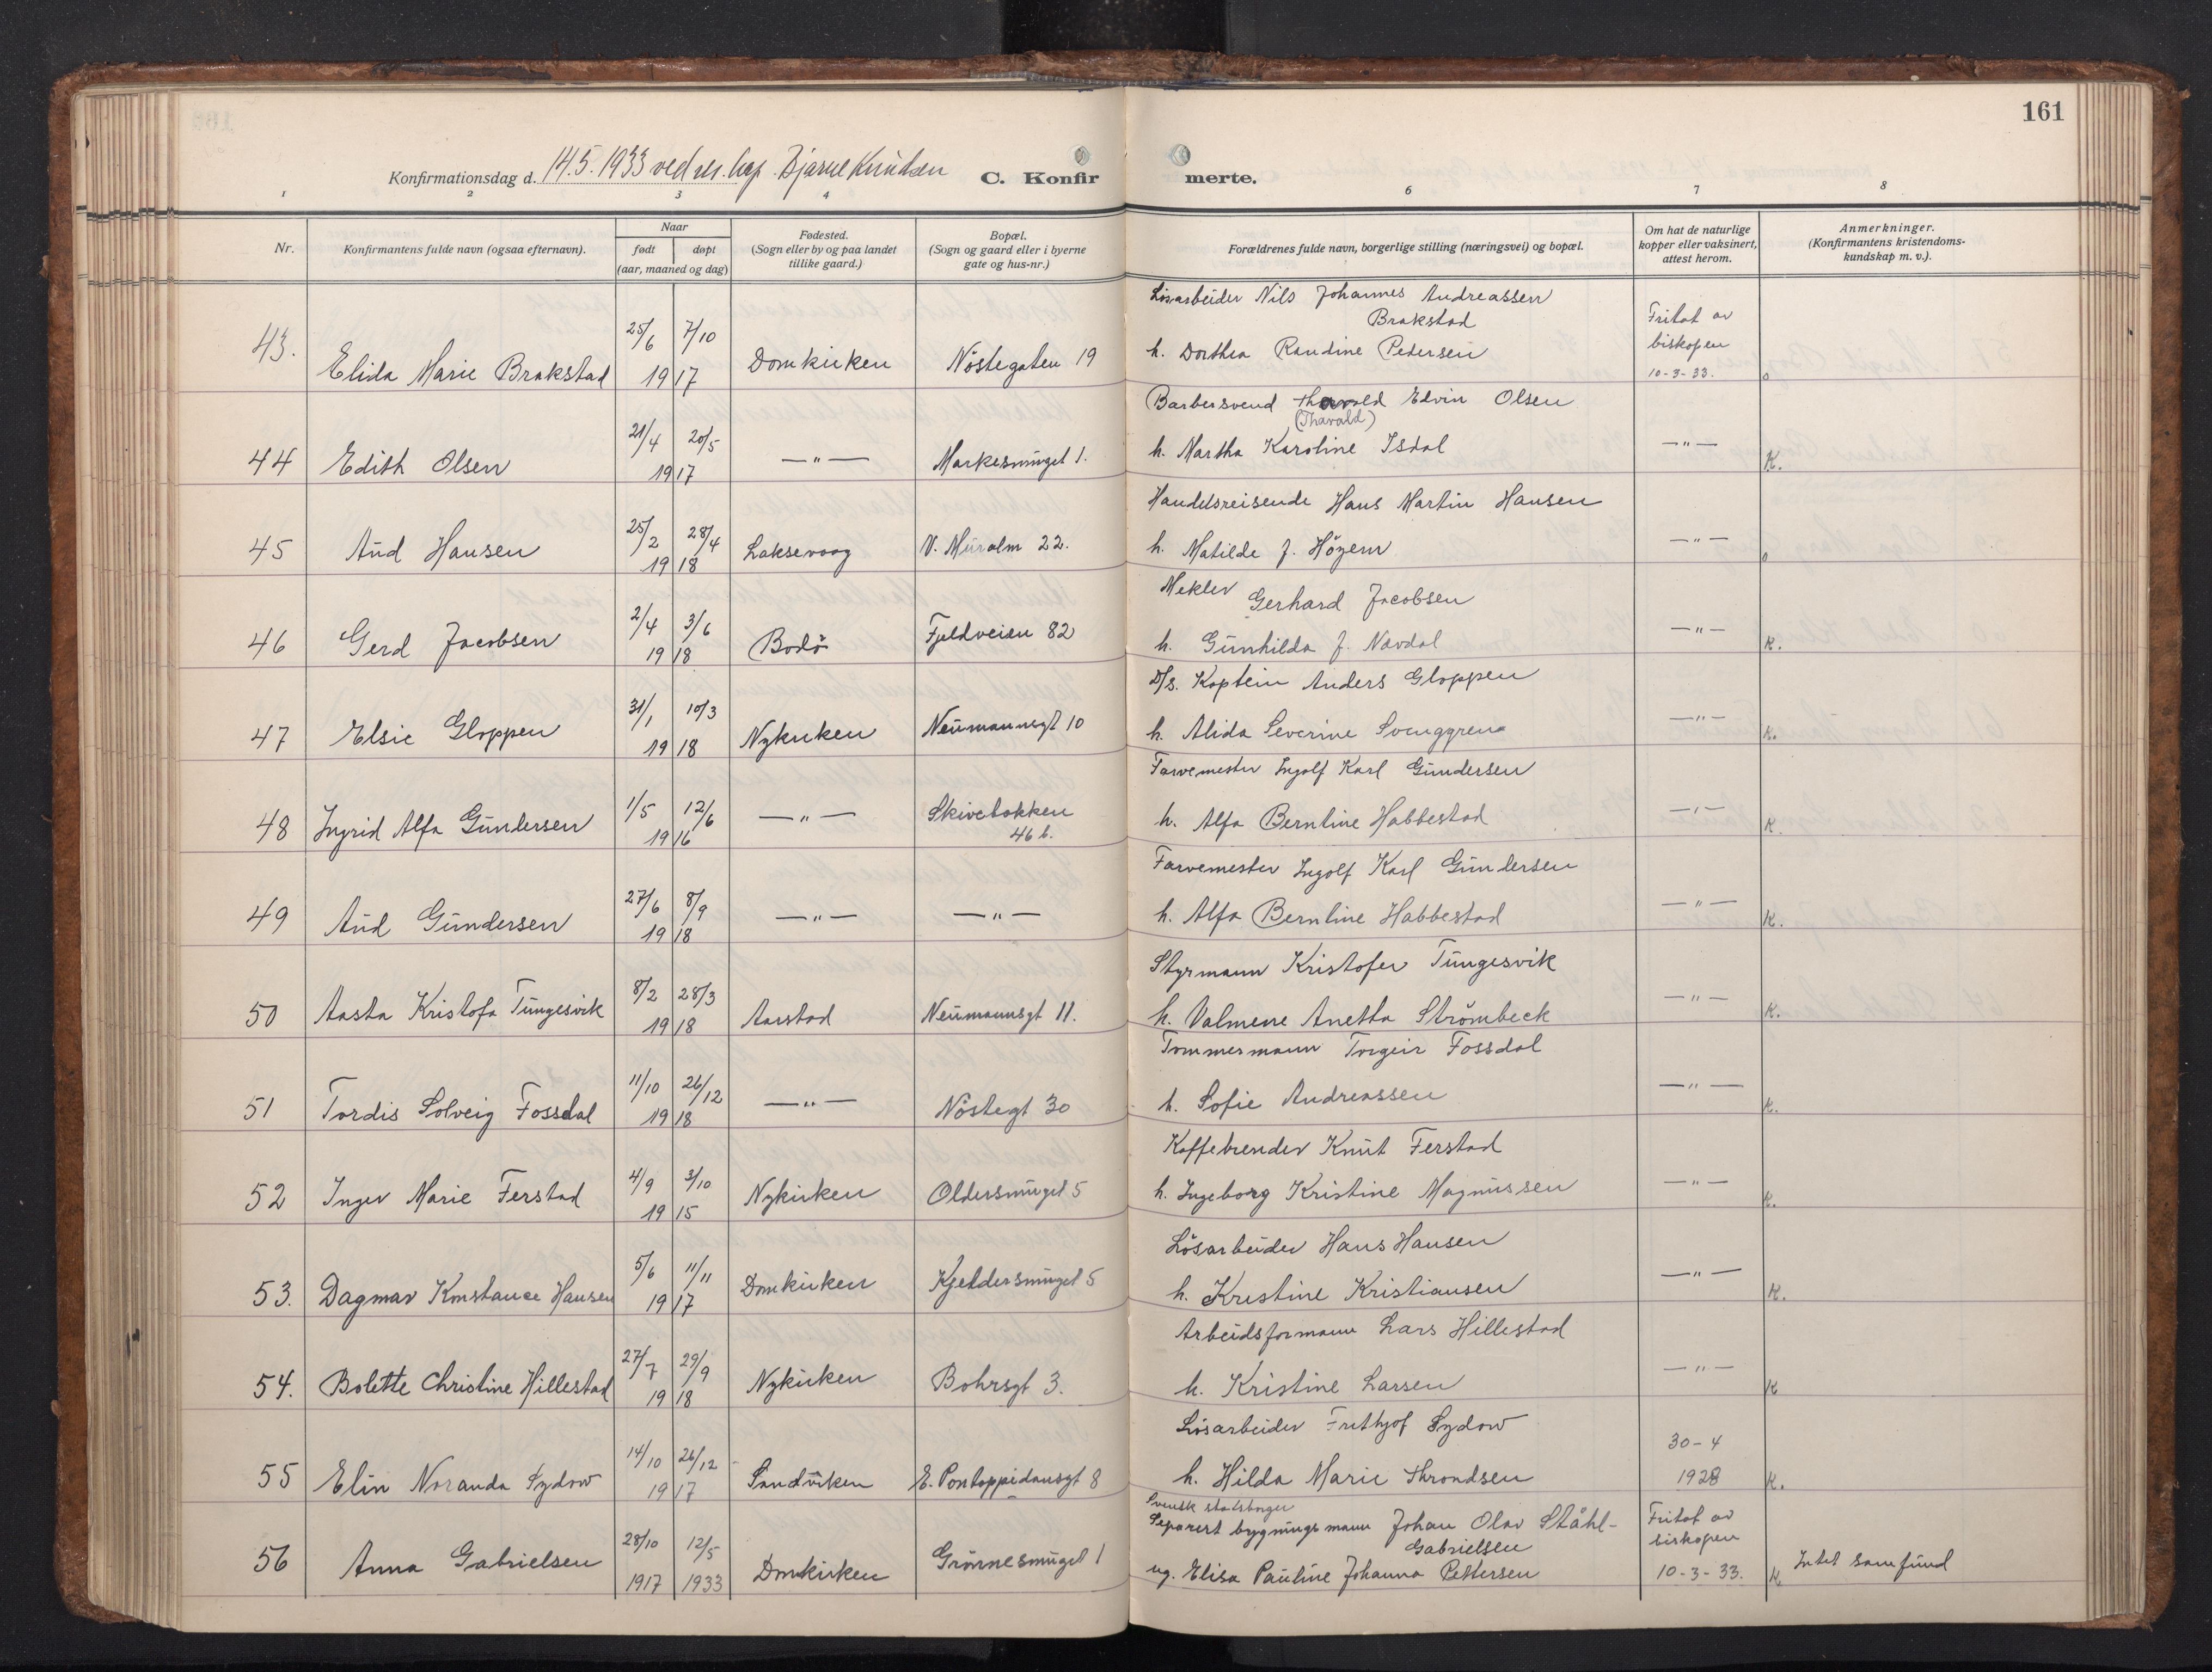 161
Konfirmationsdag d. 14.5.1933 ved res. kap. Bjarne Knudsen C. Konfir merte.
1 2 3 4 6 7 8
Nr. Konfirmantens fulde navn (ogsaa efternavn). Naar født døpt (aar, maaned og dag) Fødested. (Sogn eller by og paa landet tillike gaard.) Bopæl. (Sogn og gaard eller i byerne gate og hus-nr.) Forældrenes fulde navn, borgerlige stilling (næringsvei) og bopæl. Om hat de naturlige kopper eller vaksinert, attest herom. Anmerkninger. (Konfirmantens kristendoms-kundskap m. v.).
Løsarbeider Nils Johannes Andreassen
Brakstad
43. Elida Marie Brakstad 25/6 7/10 1917 Domkirken Nöstegaten 19 h. Dorthea Randine Pedersen Fritat av biskopen 10-3-33. o
Barbersvend Thorvald Edvin Olsen
(Thavald)
44 Edith Olsen 21/4 20/5 1917 —"— Markesmuget 1. h. Martha Karoline Isdal —"— K.
Handelsreisende Hans Martin Hansen
45 Aud Hansen 25/2 28/4 1918 Laksevaag V. Muralm 22. h. Matilde J. —"— o
Mekler Gerhard Jacobsen
46 Gerd Jacobsen 2/4 3/6 1918 Bodö Fjeldveien 82 h. Gunhilda J. Navdal —"— K.
D/s. Kaptein Anders Gloppen
47 Elsie Gloppen 31/1 10/3 1918 Nykirken Neumannsgt 10 h. Alida Severine Svenggren —"— K.
Farvemester Ingolf Karl Gundersen
48 Ingrid Alfa Gundersen 1/5 12/6 1916 —"— Skivebakken 46 b. h. Alfa Berntine Habbestad —"— K.
Farvemester Ingolf Karl Gundersen
49 Aud Gundersen 27/6 8/9 1918 —"— —"— h. Alfa Berntine Habbestad —"— K.
Styrmann Kristofer Tungesvik
50 Aasta Kristofa Tungesvik 8/2 28/3 1918 Aarstad Neumannsgt 11. h. Valmene Anetta Strömbeck —"— K.
Tømmermann Torgeir Fossdal
51 Tordis Solveig Fossdal 11/10 26/12 1918 —"— Nöstegt 30 h. Sofie Andreassen —"— K.
Kaffebrender Knut Ferstad
52 Inger Marie Ferstad 4/9 3/10 1915 Nykirken Oldersmuget 5 h. Ingeborg Kristine Magnussen —"— K.
Lösarbeider Hans Hansen
53. Dagmar Konstance Hansen 5/6 11/11 1917 Domkirken Kjeldersmuget 5 h. Kristine Kristiansen —"— K.
Arbeidsformann Lars Hillestad
54. Bolette Christine Hillestad 27/7 29/9 1918 Nykirken Bohrsgt 3. h. Kristine Larsen —"— K
Lösarbeider Frithjof Sydow
55 Elin Noranda Sydow 14/10 26/12 1917 Sandviken E. Pontoppidansgt 8 h. Hilda Marie Throndsen 30-4 1928 K.
Svensk statsborger
Separert bygningsmann Johan Olav Ståhl-
Gabrielsen
56 Anna Gabrielsen 28/10 1917 12/5 1933 Domkirken Grönnesmuget 1 ug. Elisa Pauline Johanna Pettersen Fritat av biskopen 10-3-33. K Intet samfund